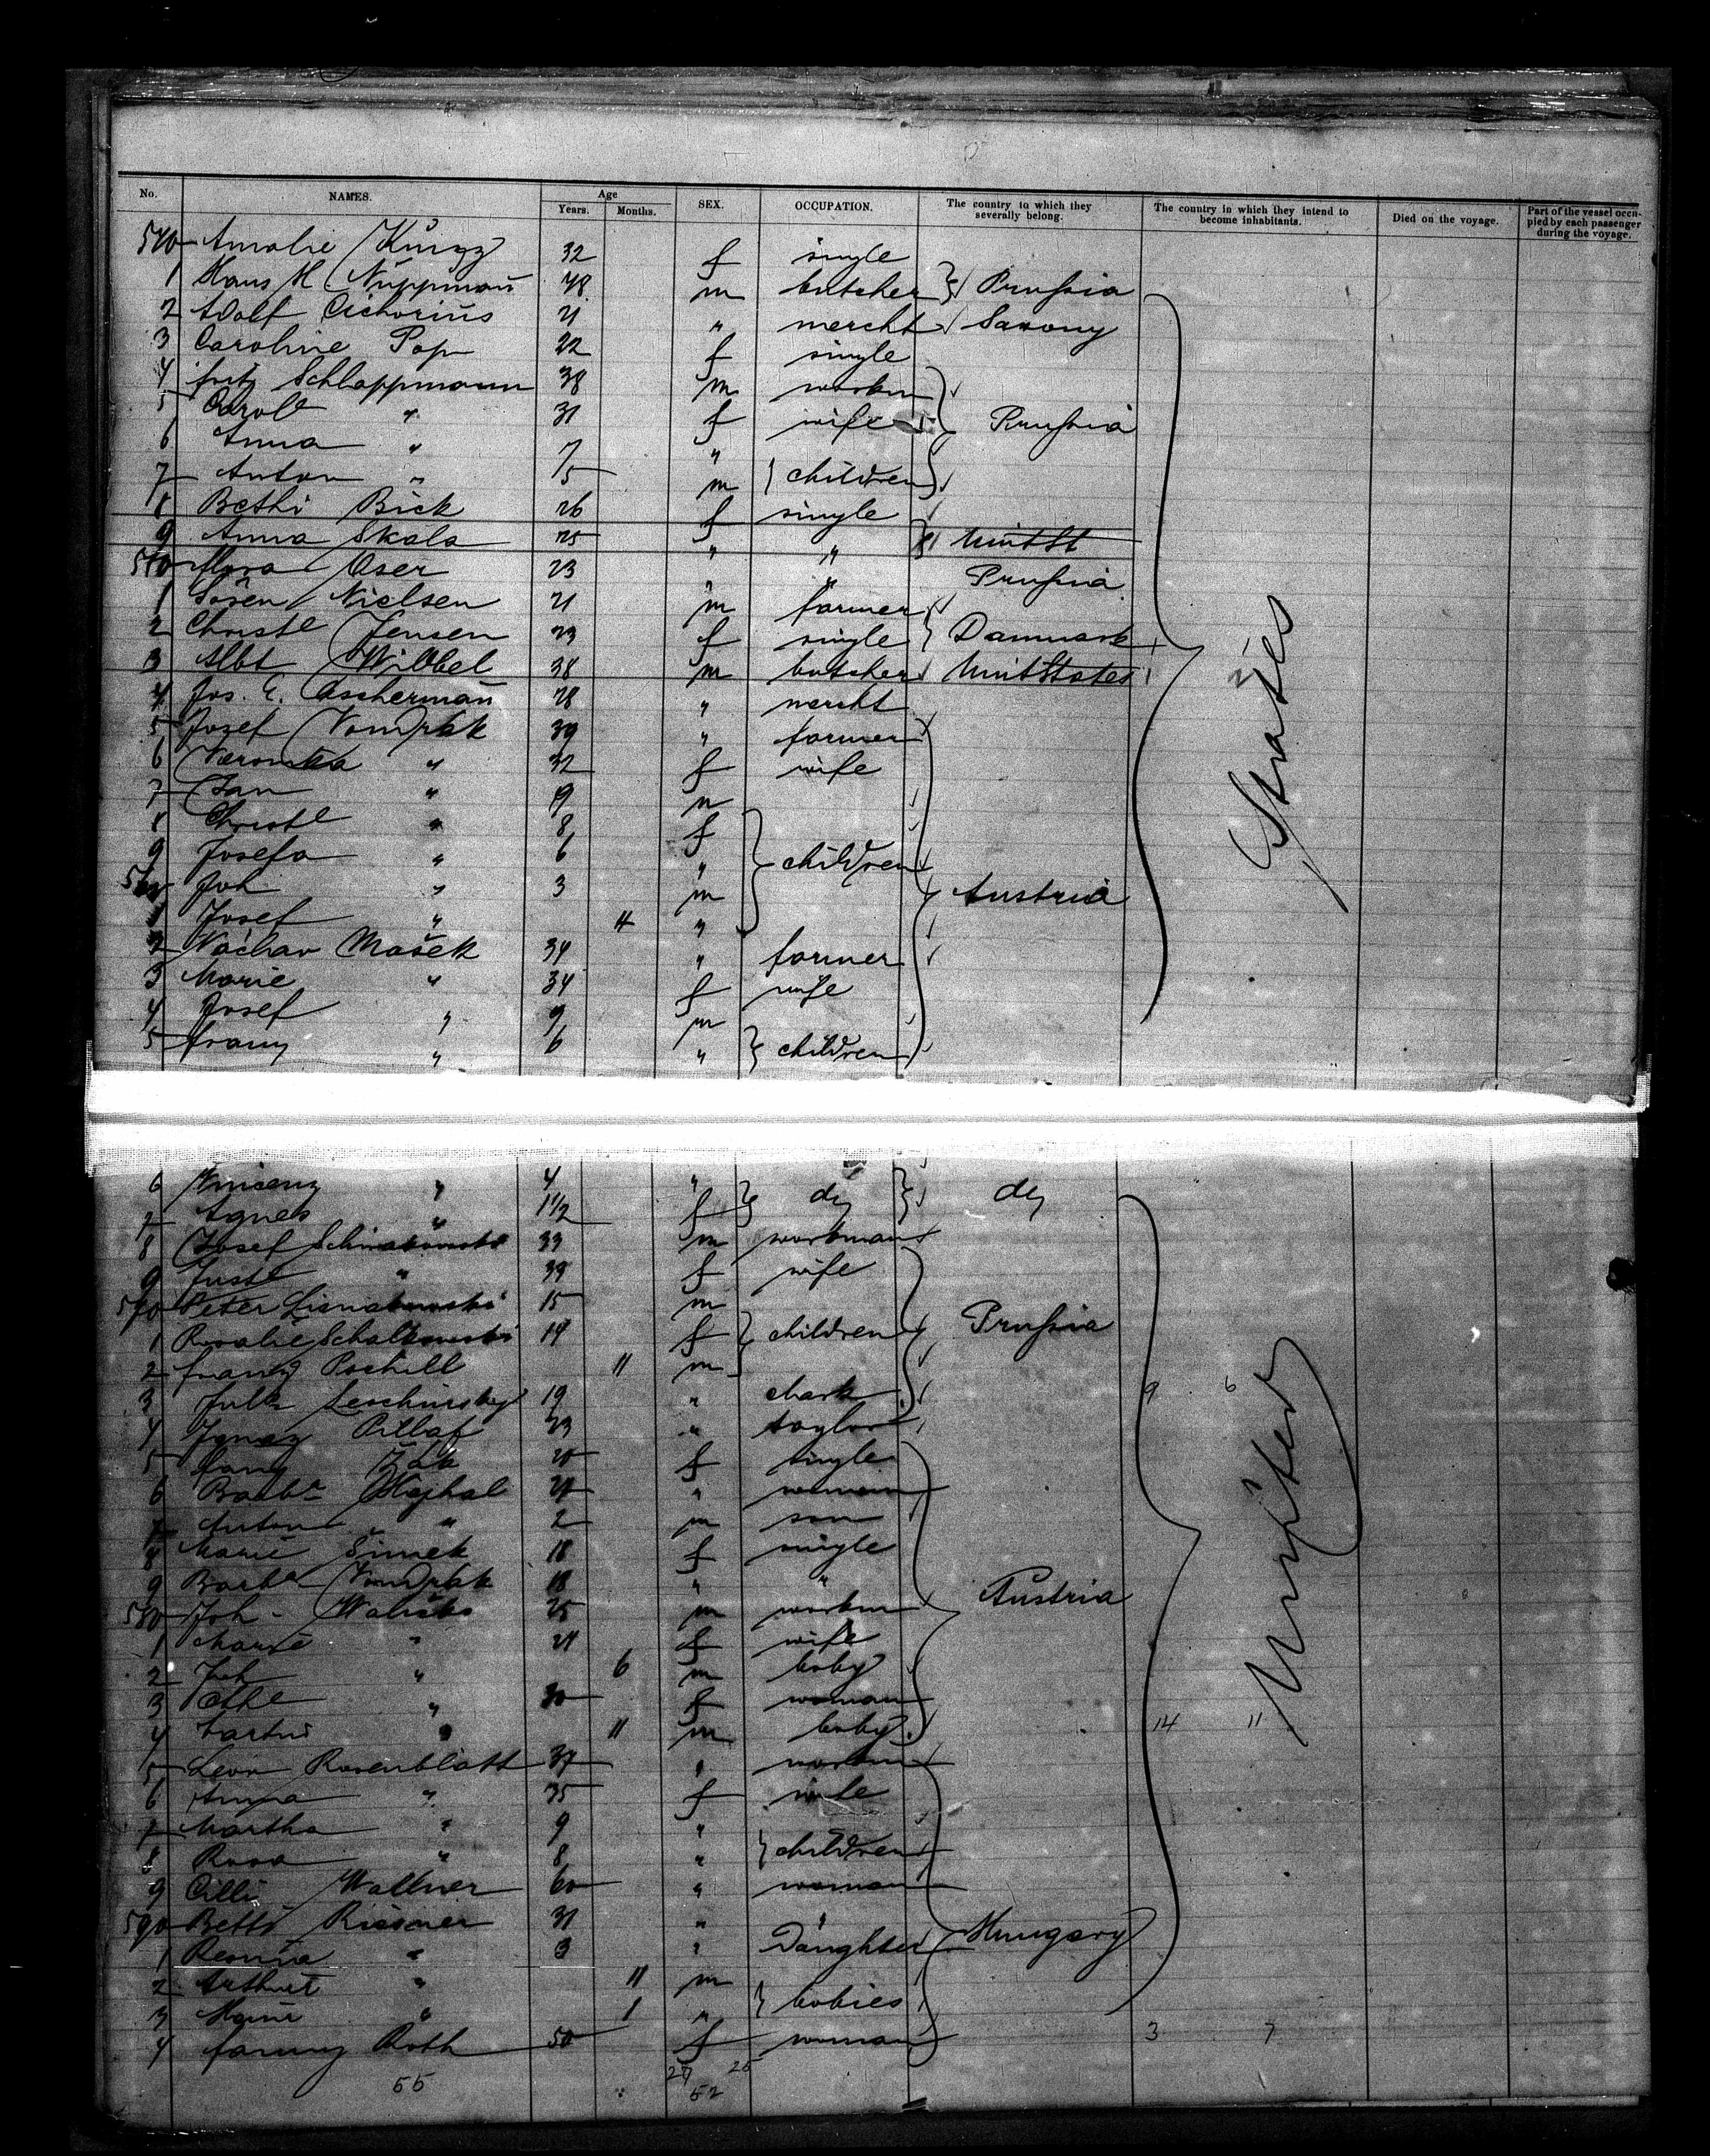 No. NAMES. Age Years. Months. SEX. OCCUPATION. The country to which they severally belong. The country in which they intend to become inhabitants. Died on the voyage. Part of the vessel occupied by each passenger during the voyage.
540 Amalie 32 f single
1 Hans H Nüppmañ 48 m butcher Prußia
2 Adolf Cichorius 21 " mercht Saxony
3 Caroline Pop 22 f single
4 fritz Schlappmann 38 m workm
5 Carole " 31 f wife Prußia
6 Anna " 7 "
7 Anton " 5 m children
8 Bethi Bick 26 f single
9 Anna Skala 25 " " Unit St
550 flora Oser 23 " " Prußia
1 Sören Nielsen 21 m farmer
2 Christe Jensen 23 f single Danmark
3 Albt Wibbel 38 m butcher Unit States
4 Jos. E. Aschermañ 28 " mercht
5 Josef Vondrak 39 " farmer
6 Veronika " 32 f wife
7 Jan " 19 m
8 Christe " 8 f
9 Josefa " 6 " children
560 Joh " 3 m Austria
1 Josef " 11 "
2 Wachav Mašek 34 " farmer
3 Marie " 34 f wife
4 Josef " 9 m
5 franz " 6 " children
States
6 Vincenz " 4 " do do
7 Agnes " 1 1/2 f
8 Josef 33 m workman
9 Juste " 39 f wife
570 Peter 15 m
1 Rosalie 19 f children Prußia
2 franz Pschill 11 m
3 Leschinsky 19 " clark 9 6
4 Ignaz Pillaf 23 " taylor
5 Žak 20 f single
6 Barba 24 " woman
7 Anton " 2 m son
8 Marie Šimek 18 f single
9 Barba Vondrak 18 " "
Austria
580 Joh 25 m workm
1 Marie " 21 f wife
2 Joh " 6 m baby
3 " 30 f woman
4 " 11 m baby 14 11
5 Leon Rosenblatt 37 " workm
6 Anna " 35 f wife
7 Martha " 9 "
8 Rosa " 8 " children
9 Cilli Wallner 60 " woman
590 Betti 31 " "
1 " 3 " Daughter Hungary
2 Arthur " 11 m
3 " 1 " babies
4 fanny Roth 50 f woman 3 7
United
55 27 25
52